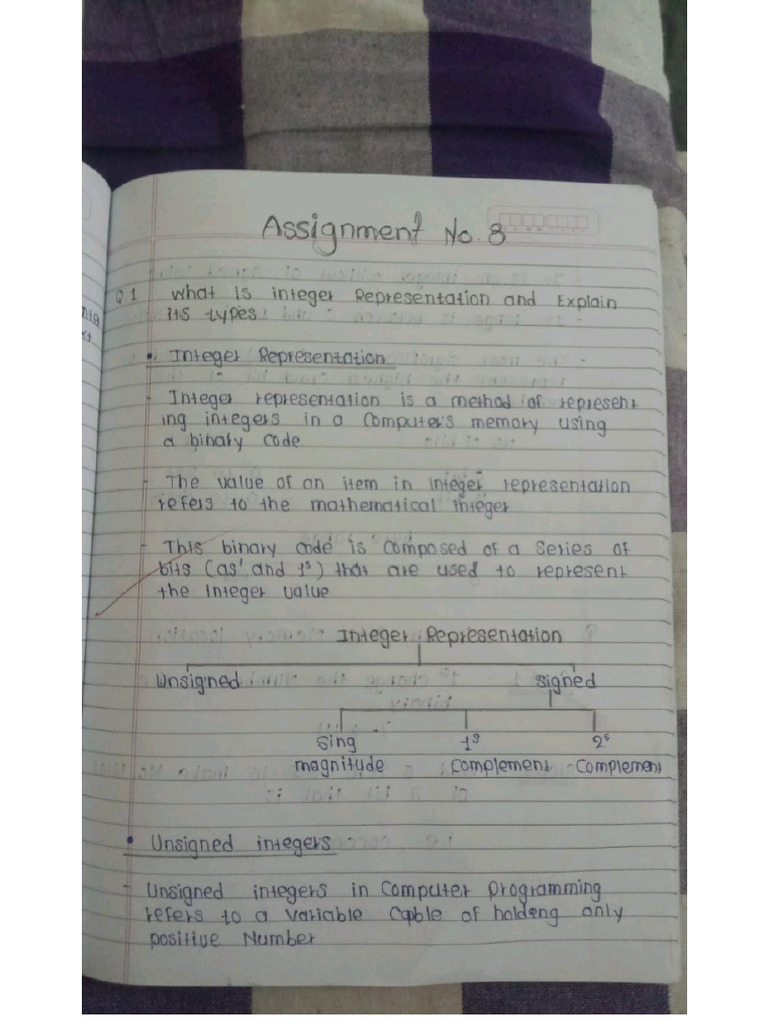 Assignment No. 8
Q.1 What is integer Representation and Explain
its types.
• Integer Representation
- Integer representation is a method of represent
ing integers in a Computer's memory using
a binary code.
- The value of an item in integer representation
refers to the mathematical integer
- This binary code is composed of a series of
bits (as' and 1s) that are used to represent
the integer value
Integer Representation
Unsigned signed
Sing 1s 2s
magnitude Complement -Complement
• Unsigned integers
- Unsigned integers in Computer programming
refers to a variable Capble of holdeng only
positive Number